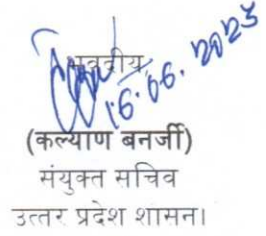 भवदीय,
16.06.2023
(कल्याण बनर्जी)
संयुक्त सचिव
उत्तर प्रदेश शासन।